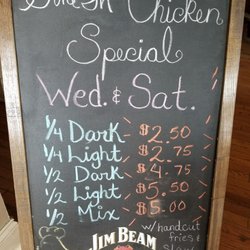 Chicken
Special
Wed. & Sat.
1/4 Dark - $2.50
1/4 Light - $2.75
1/2 Dark - $4.75
1/2 Light - $5.50
1/2 Mix - $5.00
w/ handcut
fries &
Slaw
JIM BEAM